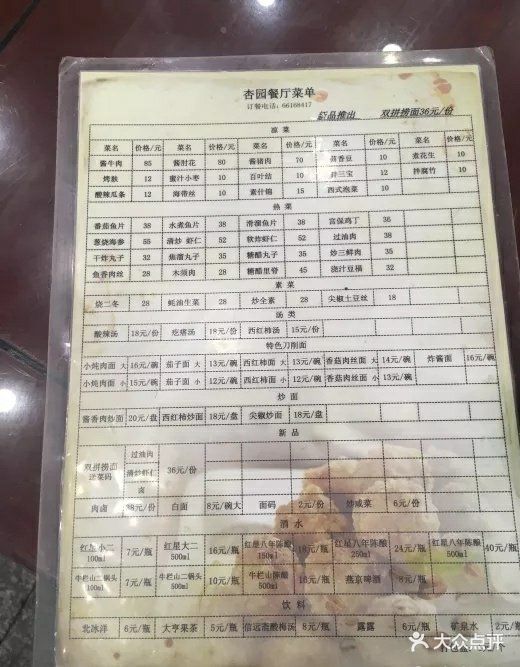 杏园餐厅菜单
订餐电话：66168417
新品推出 双拼捞面36元/份
凉菜
菜名 价格/元 菜名 价格/元 菜名 价格/元 菜名 价格/元 菜名 价格/元
酱牛肉 85 酱肘花 80 酱猪肉 70 茴香豆 10 煮花生 10
烤麸 12 蜜汁小枣 10 百叶结 10 拌三宝 12 拌腐竹 10
酸辣瓜条 12 海带丝 10 素什锦 15 西式泡菜 10
热菜
番茄鱼片 38 水煮鱼片 38 滑溜鱼片 38 宫保鸡丁 38
葱烧海参 55 清炒 虾仁 52 软炸虾仁 52 过油肉 38
干炸丸子 32 焦溜丸子 35 糖醋丸子 35 炒三鲜肉 35
鱼香肉丝 28 木须肉 28 糖醋里脊 45 浇汁豆腐 32
素菜
烧二冬 28 蚝油生菜 28 炒全素 28 尖椒土豆丝 18
汤类
酸辣汤 18元/份 疙瘩汤 18元/份 西红柿汤 15元/份
特色刀削面
小炖肉面 大 16元/碗 茄子面 大 13元/碗 西红柿面 大 13元/碗 香菇肉丝面 大 14元/碗 炸酱面 16元/碗
小炖肉面 小 15元/碗 茄子面 小 12元/碗 西红柿面 小 12元/碗 香菇肉丝面 小 13元/碗
炒面
酱香肉炒面 20元/盘 西红柿炒面 18元/盘 尖椒炒面 18元/盘
新品
双拼捞面 送菜码 过油肉 清炒虾仁 卤 36元/份
肉卤 28元/份 白面 8元/碗大 面码 2元/份 炒咸菜 6元/份
酒水
红星小二 100ml 7元/瓶 红星大二 500ml 16元/瓶 红星八年陈酿 150ml 18元/瓶 红星八年陈酿 250ml 24元/瓶 红星八年陈酿 500ml 40元/瓶
牛栏山二锅头 100ml 7元/瓶 牛栏山二锅头 500ml 10元/瓶 牛栏山陈酿 500ml 16元/瓶 燕京啤酒 8元/瓶
饮料
北冰洋 6元/瓶 大亨果茶 5元/瓶 信远斋酸梅汤 8元/瓶 露露 6元/瓶 矿泉水 2元/瓶
大众点评